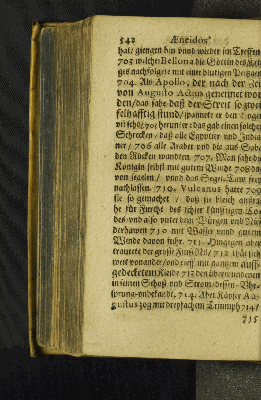 542 Æneidos
hat/ giengen hin vnnd wieder im Treffen
703 welche Bellona die Göttin des Krie-
ges nachfolgete mit einer blutigen Peitzgen
704. Als Apollo, der nach der
von Augusto Actius genennet wor
den/ das sahe daß der Streit so zwei
felhafftig stund/ spannete er den Bogen
herunter: das gab einen solchen
Schrecken/ daß alle Egypter vnd India
ner/ 706 alle Araber vnd die aus Saba
den Rücken wandten. 707. Man sahe die
Königin selbst mit gutem Winde 708 da
von seglen/ vnnd das Segel
nachlassen. 710. Vulcanus hatte 709
sie so gemachet/ daß sie bleich aussa
he für Furcht des
des/ vnd also vnter dem Würgen vnd Nie
derhawen 710 mit Wasser vnnd gutem
Winde davon fuhr. 711. Hingegen aber
traurete der grosse Fluß Nil/ 712 thät sich
weit vonander/ vnd rieff mit gantzem auff-
gedecketem Kleide 713 den überwundenen
in seinen Schoß vnd Strom/ dessen Vhr-
sprung vnbekandt. 714. Aber Käyser Au-
gustus zog mit dreyfachem Triumph 714/
715